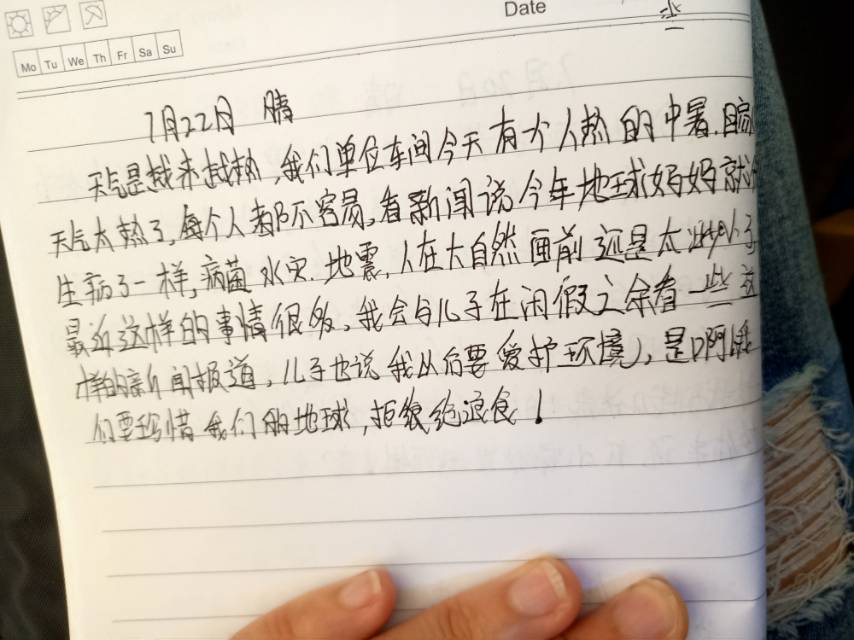 Date
Mo Tu We Th Fr Sa Su
7月22日 晴
天气是越来越热,我们单位车间今天有个人热的中暑.
天气太热了,每个人都不容易,看新闻说今年地球妈妈就
生病了一样,病菌 水灾.地震,人在大自然面前还是太渺小了
最近这样的事情很多,我会与儿子在闲假之余看一些这
样的新闻报道,儿子也说我从后要爱护环境,是啊我
们要珍惜我们的地球,拒绝浪食!